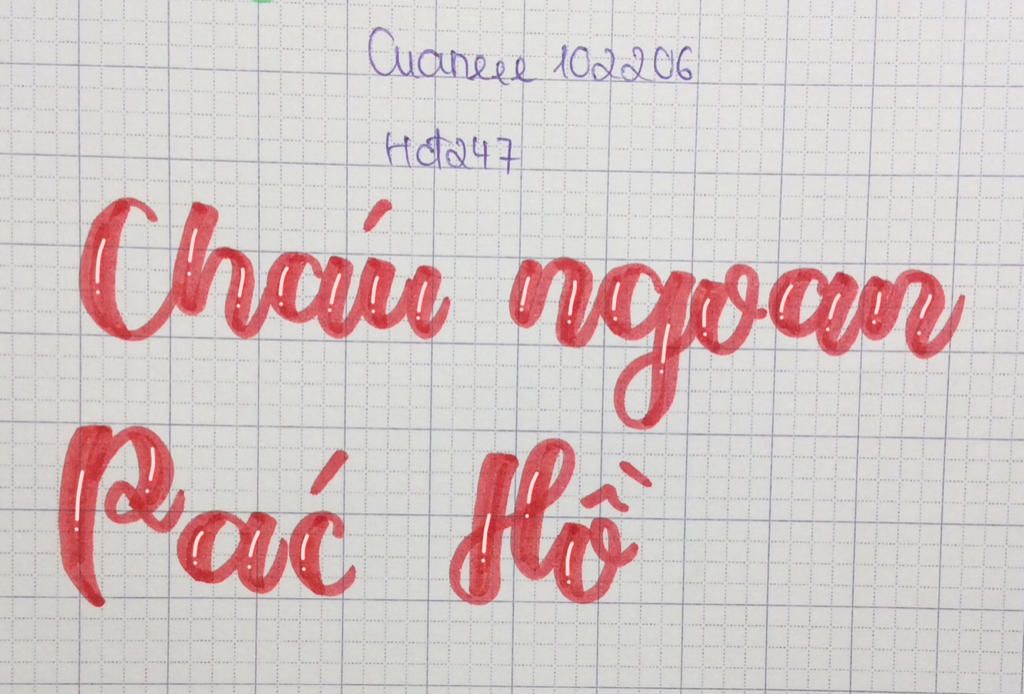 Cuaneee 102206
Hdt247
Cháu ngoan
Pác Hồ